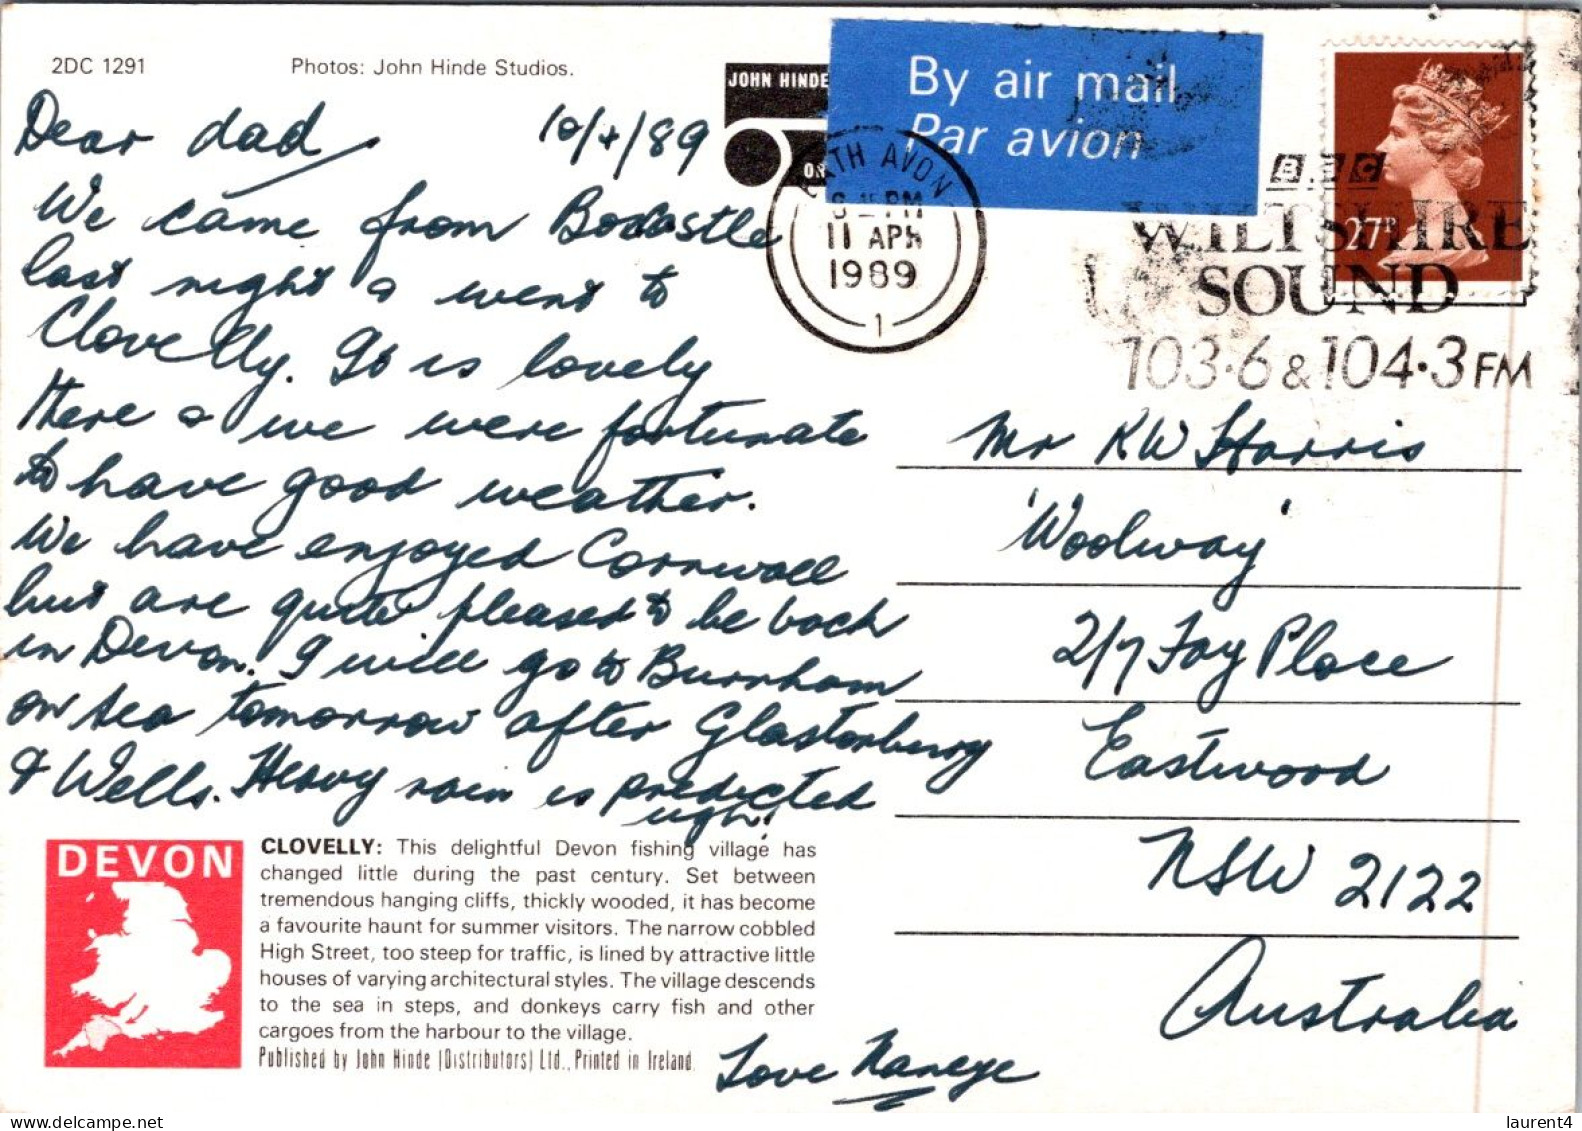 2DC 1291
Photos: John Hinde Studios.
JOHN HINDE
OR
By air mail
Par avion
BATH AVON
PM
11 APR
1989
1
BBC
WILTSHIRE
SOUND
103·6 & 104·3 FM
27P
Dear dad, 10/4/89
We came from Boscastle
last night & went to
Clovelly. It is lovely
there & we were fortunate
to have good weather.
We have enjoyed Cornwall
but are quite pleased to be back
in Devon. I will go to Burnham
on sea tomorrow after Glastonbury
& Wells. Heavy rain is predicted
ugh!
Love Naneye
Mr KW Harris
'Woolway'
2/7 Fay Place
Eastwood
NSW 2122
Australia
DEVON
CLOVELLY: This delightful Devon fishing village has
changed little during the past century. Set between
tremendous hanging cliffs, thickly wooded, it has become
a favourite haunt for summer visitors. The narrow cobbled
High Street, too steep for traffic, is lined by attractive little
houses of varying architectural styles. The village descends
to the sea in steps, and donkeys carry fish and other
cargoes from the harbour to the village.
Published by John Hinde (Distributors) Ltd., Printed in Ireland.
laurent4